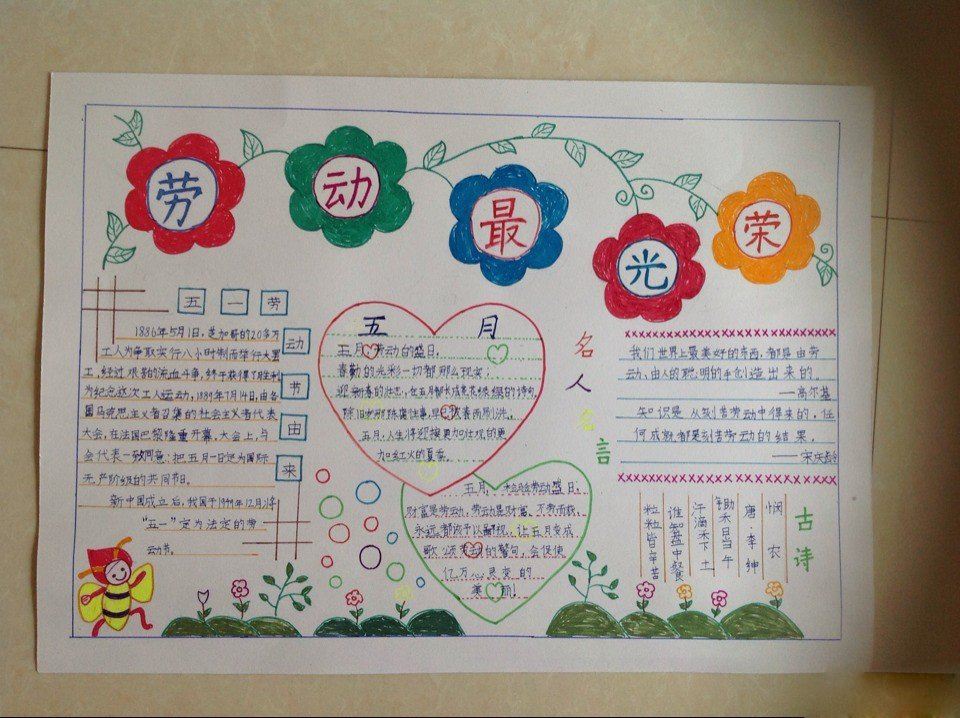 劳动最光荣
五一劳
动节由来
1886年5月1日,芝加哥的20多万
工人为争取实行八小时制而举行大罢
工,经过艰苦的流血斗争,终于获得了胜利
为纪念这次工人运动,1889年7月14日,由各
国马克思主义者召集的社会主义者代表
大会,在法国巴黎隆重开幕,大会上,与
会代表一致同意:把五月一日定为国际
无产阶级的共同节日。
新中国成立后,我国于1949年12月将
“五一”定为法定的劳
动节。
五月
五月,劳动的盛日,
春勤的光彩一切都那么现实;
五月,人生将迎接更加壮观的更
加红火的夏夜。
五月,劳动盛日;
财富是劳动,劳动是财富,
永远都该予以重视,让五月变成
歌颂劳动的警句,会促使
亿万心灵变的
美丽!
名人名言
我们世界上最美好的东西,都是由劳
动、由人的聪明的手创造出来的。
——高尔基
知识是从刻苦劳动中得来的,任
何成就都是刻苦劳动的结果。
——宋庆龄
古诗
悯农
唐·李绅
锄禾日当午
汗滴禾下土
谁知盘中餐
粒粒皆辛苦